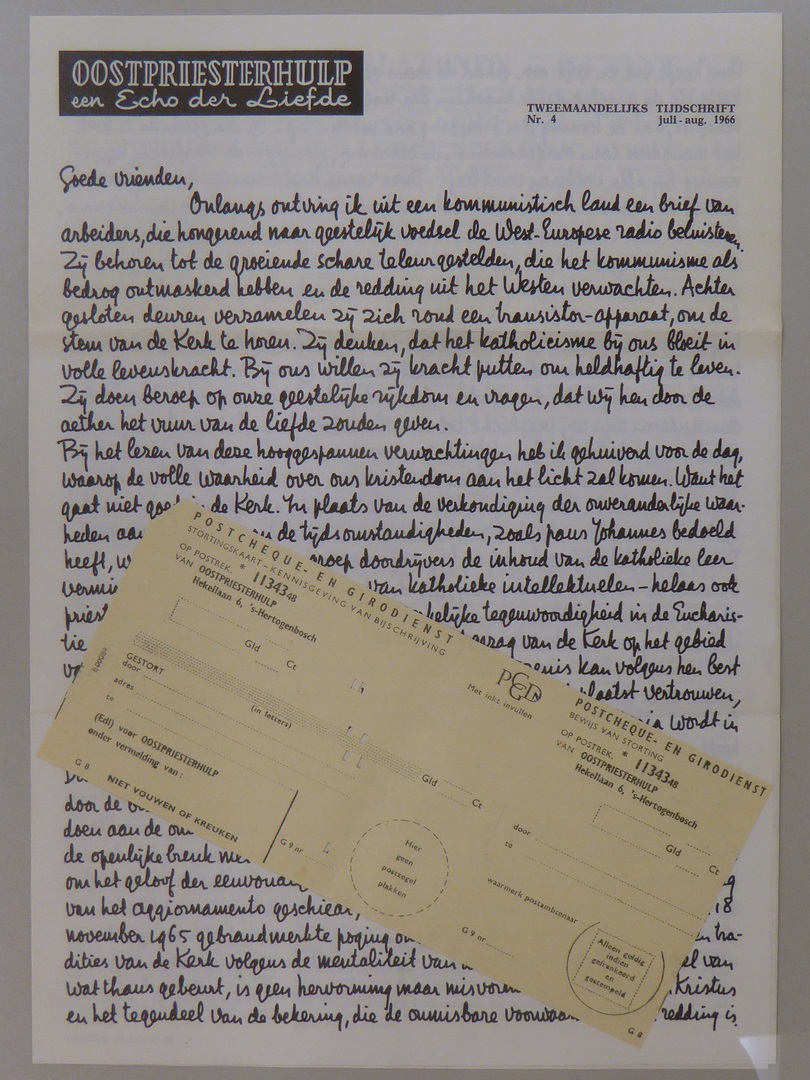 OOSTPRIESTERHULP
een Echo der Liefde
TWEEMAANDELIJKS TIJDSCHRIFT
Nr. 4 juli - aug. 1966
Goede vrienden,
Onlangs ontving ik uit een kommunistisch land een brief van
arbeiders, die hongerend naar geestelijk voedsel de West-Europese radio beluisteren.
Zij behoren tot de groeiende schare teleurgestelden, die het kommunisme als
bedrog ontmaskerd hebben en de redding uit het Westen verwachten. Achter
gesloten deuren verzamelen zij zich rond een transistor-apparaat, om de
stem van de Kerk te horen. Zij denken, dat het katholicisme bij ons bloeit in
volle levenskracht. Bij ons willen zij kracht putten om heldhaftig te leven.
Zij doen beroep op onze geestelijke rijkdom en vragen, dat wij hen door de
aether het vuur van de liefde zouden geven.
Bij het lezen van deze hooggespannen verwachtingen heb ik gehuiverd voor de dag,
waarop de volle waarheid over ons kristendom aan het licht zal komen. Want het
gaat niet goed in de Kerk. In plaats van de verkondiging der onveranderlijke waar-
heden aan de tijdsomstandigheden, zoals paus Johannes bedoeld
heeft, w groep doordrijvers de inhoud van de katholieke leer
vermi van katholieke intellektuelen - helaas ook
priest kelijke tegenwoordigheid in de Eucharis-
tie gezag van de Kerk op het gebied
enis kan volgens hen best
plaatst vertrouwen,
wordt in
door de
doen aan de
de openlijke breuk
om het geloof der eenvoudig
van het aggiornamento geschied, 18
november 1965 gebrandmerkte poging tra-
dities van de Kerk volgens de mentaliteit van el van
wat thans gebeurt, is geen hervorming maar misvorm Kristus
en het tegendeel van de bekering, die de onmisbare voorwaar redding is.
POSTCHEQUE- EN GIRODIENST
STORTINGSKAART - KENNISGEVING VAN BIJSCHRIJVING
OP POSTREK. * 1134348
VAN OOSTPRIESTERHULP
Hekellaan 6, 's-Hertogenbosch
Gld Ct
GESTORT
door
(in letters)
adres
te
Gld Ct
(Edl) voor OOSTPRIESTERHULP
onder vermelding van:
G 8 NIET VOUWEN OF KREUKEN
G 9 nr
PCGD
Met inkt invullen
Hier
geen
postzegel
plakken
POSTCHEQUE- EN GIRODIENST
BEWIJS VAN STORTING
OP POSTREK. * 1134348
VAN OOSTPRIESTERHULP
Hekellaan 6, 's-Hertogenbosch
Gld Ct
door
te
waarmerk postambtenaar
G 9 nr
Alleen geldig
indien
gefrankeerd
en
gestempeld
G 8